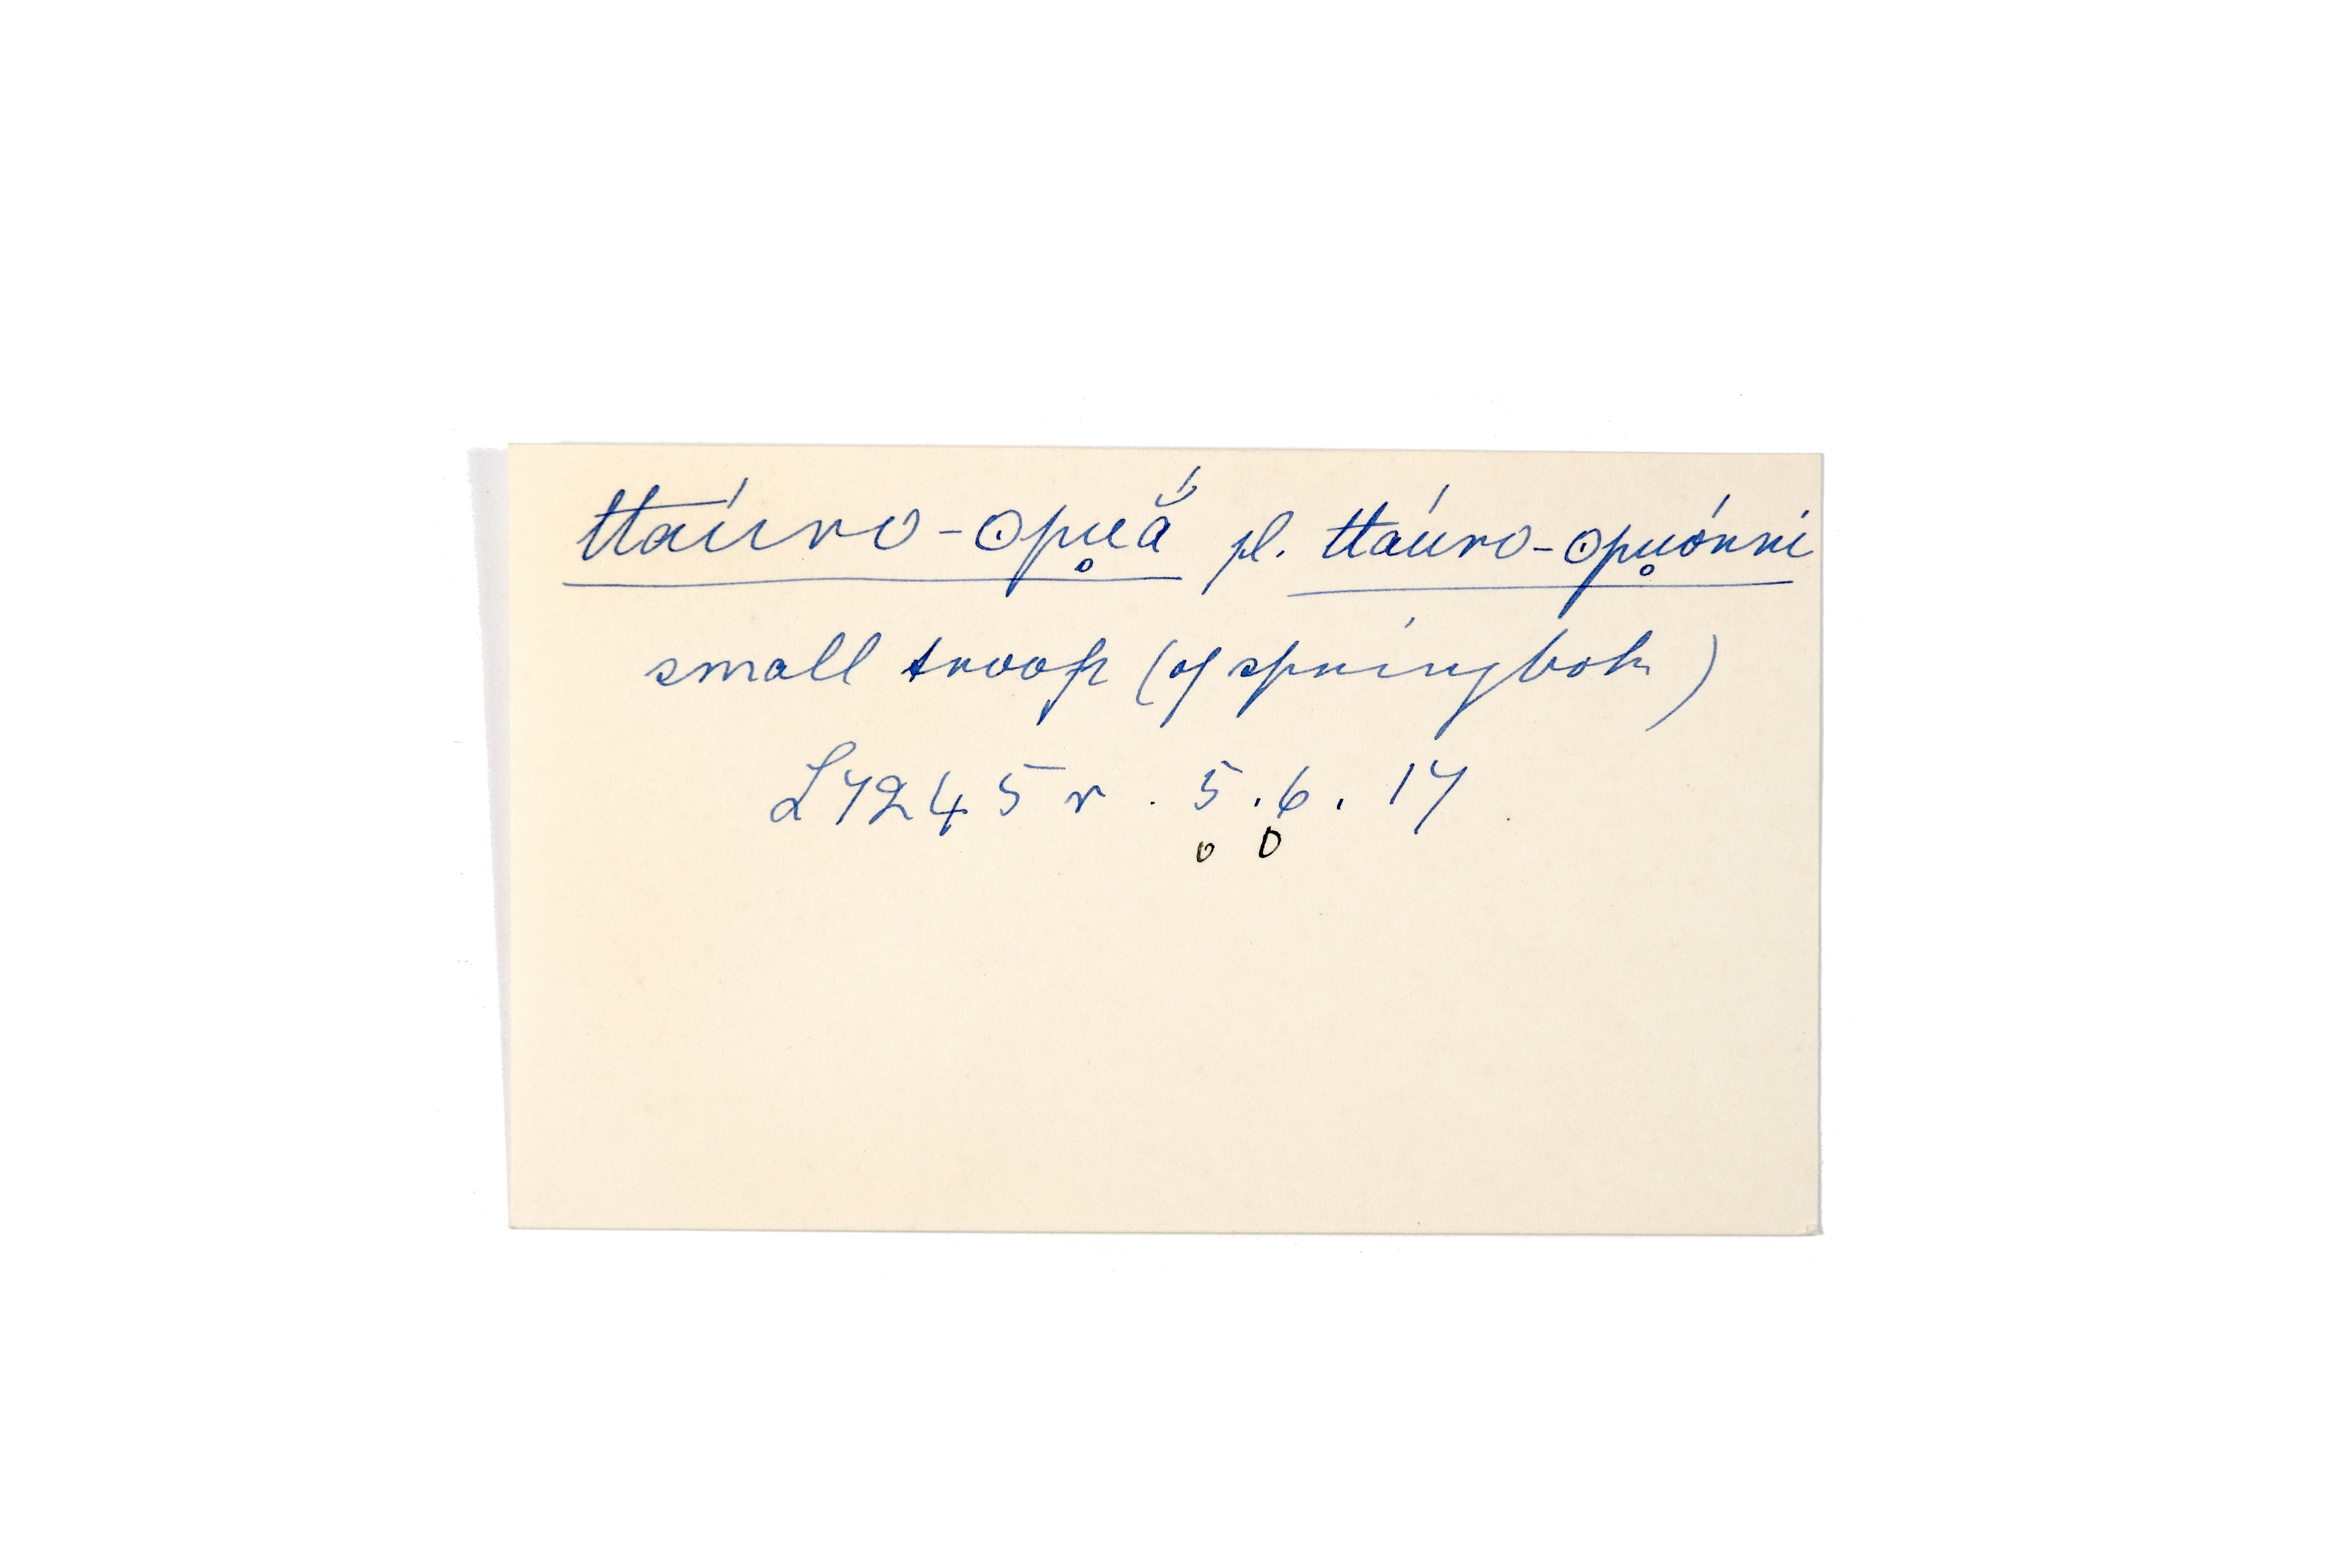 ttaúro-ʘpu̥ẵ pl. ttaúro-ʘpu̥ónni
small troop (of springbok)
L7245r. 5.6.17
o o